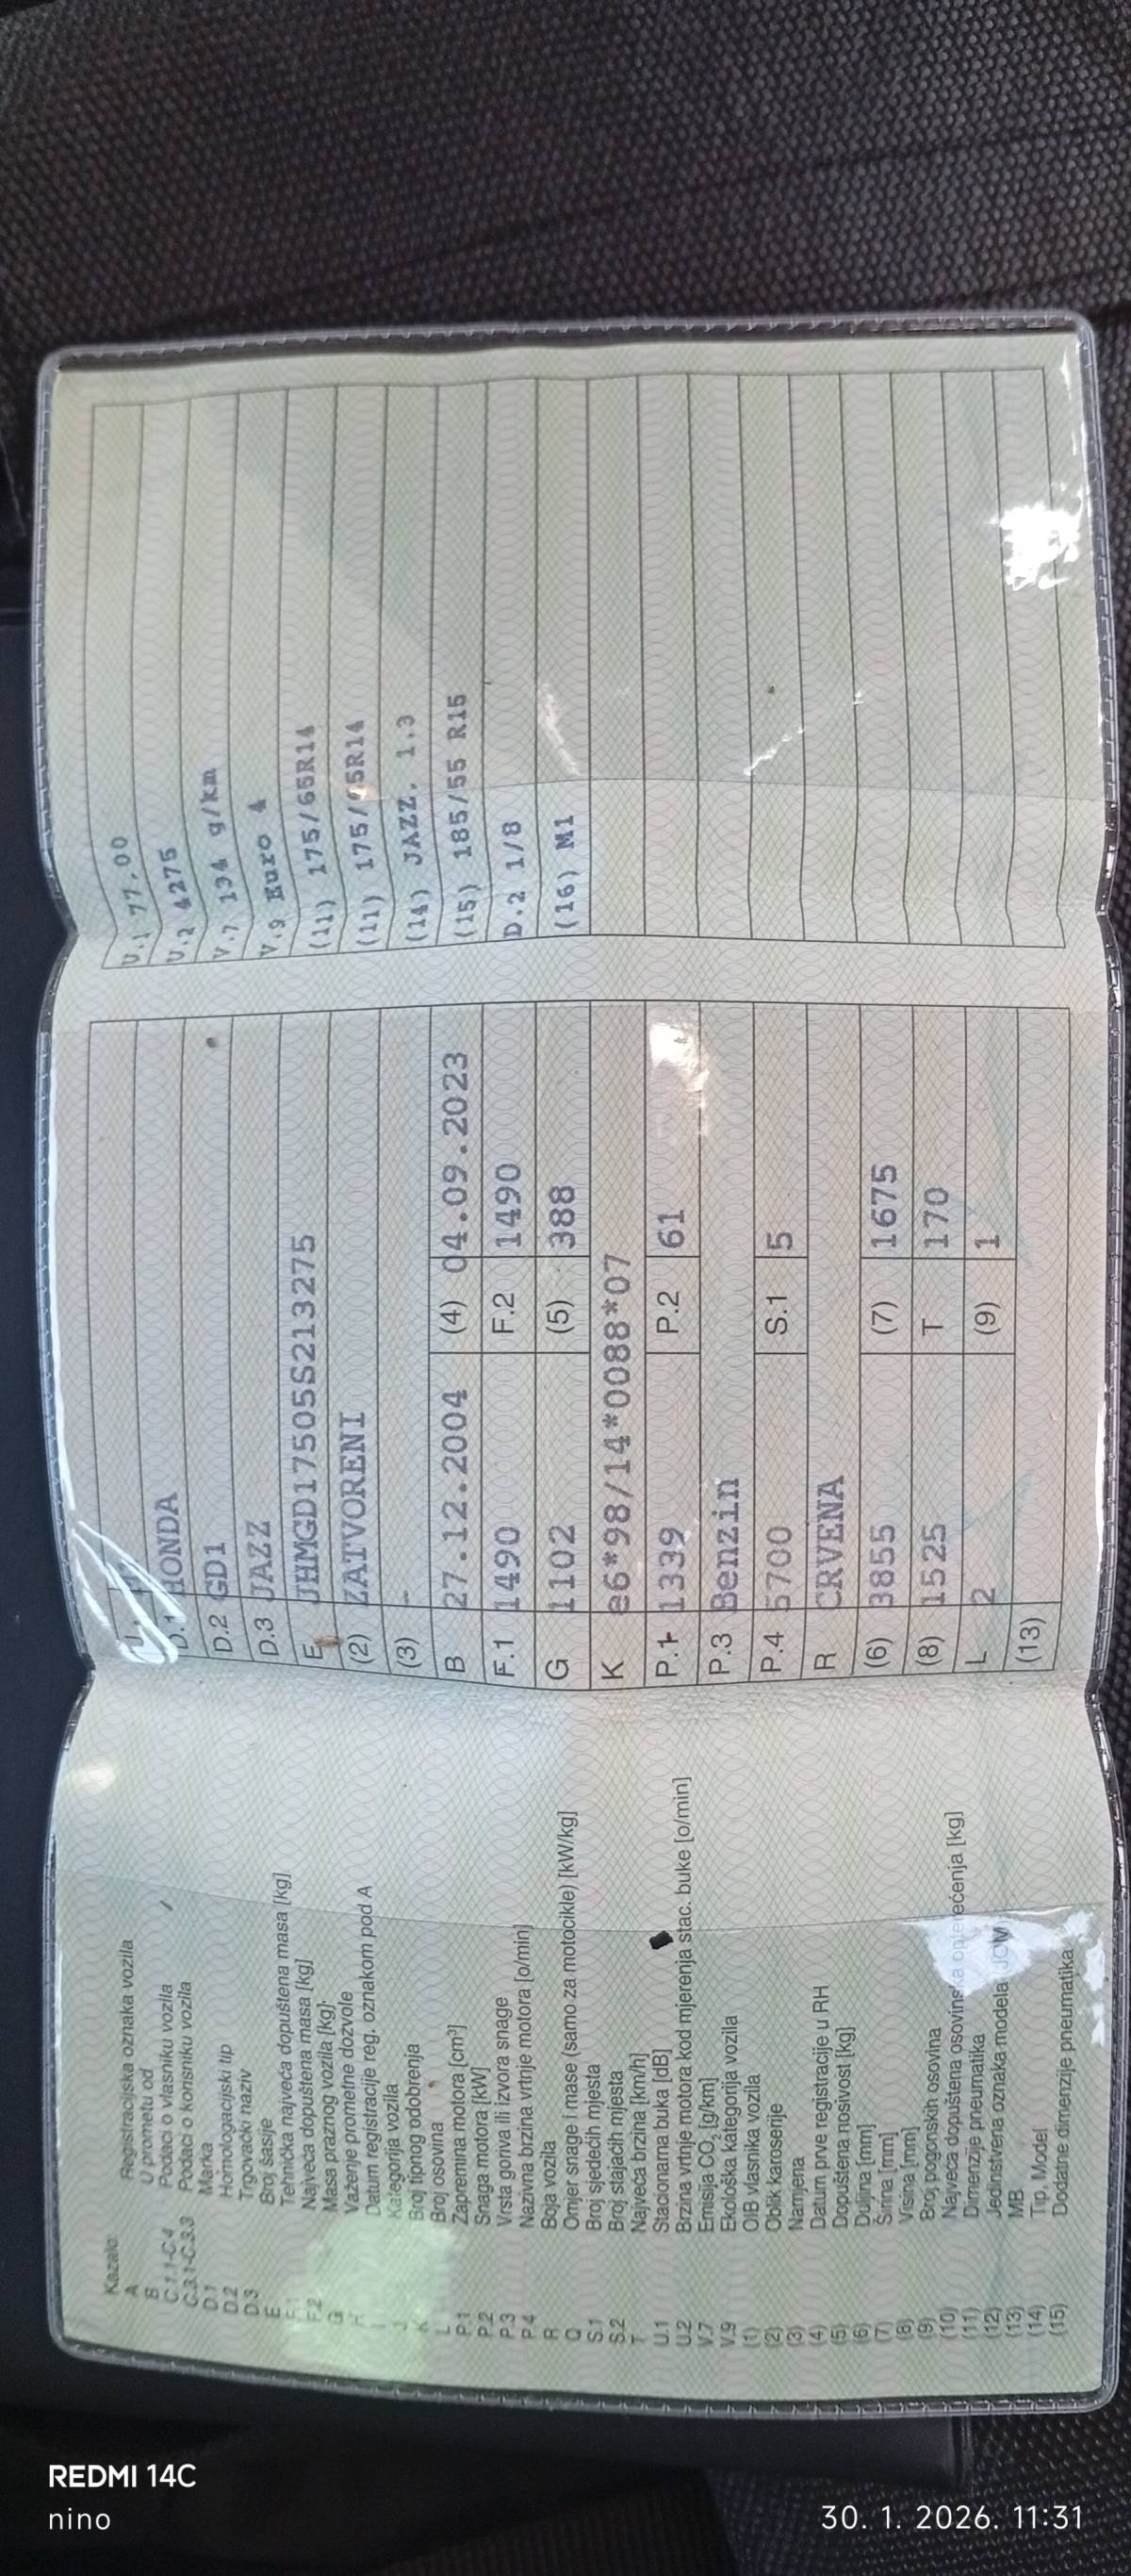 Kazalo:
A Registracijska oznaka vozila
B U prometu od
C.1.1-C.4 Podaci o vlasniku vozila
C.3.1-C.3.3 Podaci o korisniku vozila
D.1 Marka
D.2 Homologacijski tip
D.3 Trgovački naziv
E Broj šasije
F.1 Tehnička najveća dopuštena masa [kg]
F.2 Najveća dopuštena masa [kg]
G Masa praznog vozila [kg]
H Važenje prometne dozvole
I Datum registracije reg. oznakom pod A
J Kategorija vozila
K Broj tipnog odobrenja
L Broj osovina
P.1 Zapremina motora [cm³]
P.2 Snaga motora [kW]
P.3 Vrsta goriva ili izvora snage
P.4 Nazivna brzina vrtnje motora [o/min]
R Boja vozila
Q Omjer snage i mase (samo za motocikle) [kW/kg]
S.1 Broj sjedećih mjesta
S.2 Broj stajaćih mjesta
T Najveća brzina [km/h]
U.1 Stacionarna buka [dB]
U.2 Brzina vrtnje motora kod mjerenja stac. buke [o/min]
V.7 Emisija CO₂ [g/km]
V.9 Ekološka kategorija vozila
(1) OIB vlasnika vozila
(2) Oblik karoserije
(3) Namjena
(4) Datum prve registracije u RH
(5) Dopuštena nosivost [kg]
(6) Duljina [mm]
(7) Širina [mm]
(8) Visina [mm]
(9) Broj pogonskih osovina
(10) Najveća dopuštena osovinska opterećenja [kg]
(11) Dimenzije pneumatika
(12) Jedinstvena oznaka modela JOM
(13) MB
(14) Tip, Model
(15) Dodatne dimenzije pneumatika
J
D.1 HONDA
D.2 GD1
D.3 JAZZ
E JHMGD17505S213275
(2) ZATVORENI
(3) -
B 27.12.2004 (4) 04.09.2023
F.1 1490 F.2 1490
G 1102 (5) 388
K e6*98/14*0088*07
P.1 1339 P.2 61
P.3 Benzin
P.4 5700 S.1 5
R CRVENA
(6) 3855 (7) 1675
(8) 1525 T 170
L 2 (9) 1
(13)
U.1 77.00
U.2 4275
V.7 134 g/km
V.9 Euro 4
(11) 175/65R14
(11) 175/65R14
(14) JAZZ. 1.3
(15) 185/55 R15
D.2 1/8
(16) M1
REDMI 14C
nino
30. 1. 2026. 11:31